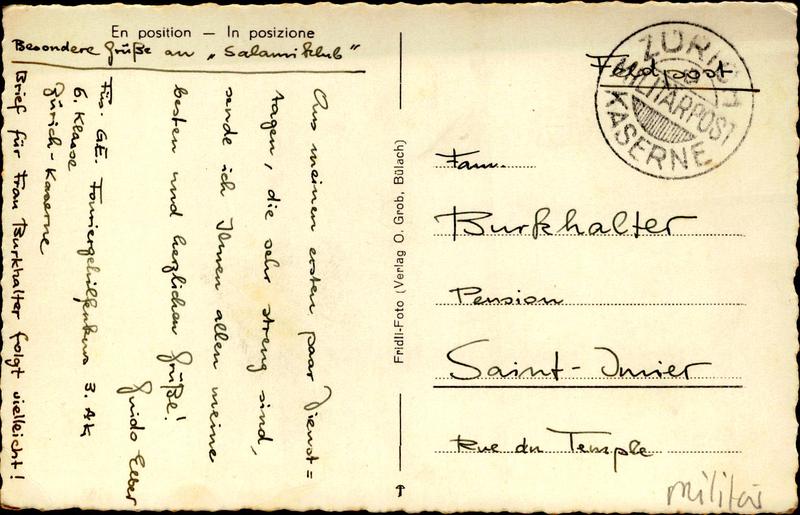 En position — In posizione
Besondere Grüße an „Salamiklub"
Aus meinen ersten paar Dienst=
tagen, die sehr streng sind,
sende ich Ihnen allen meine
besten und herzlichen Grüße!
Guido
Fouriergehilfenkurs 3. AK
6. Klasse
Zürich-Kaserne
Brief für Frau Burkhalter folgt vielleicht!
Fridli-Foto (Verlag O. Grob, Bülach)
Feldpost
ZÜRICH
MILITÄRPOST
KASERNE
Fam.
Burkhalter
Pension
Saint-Imier
Rue du Temple
militär